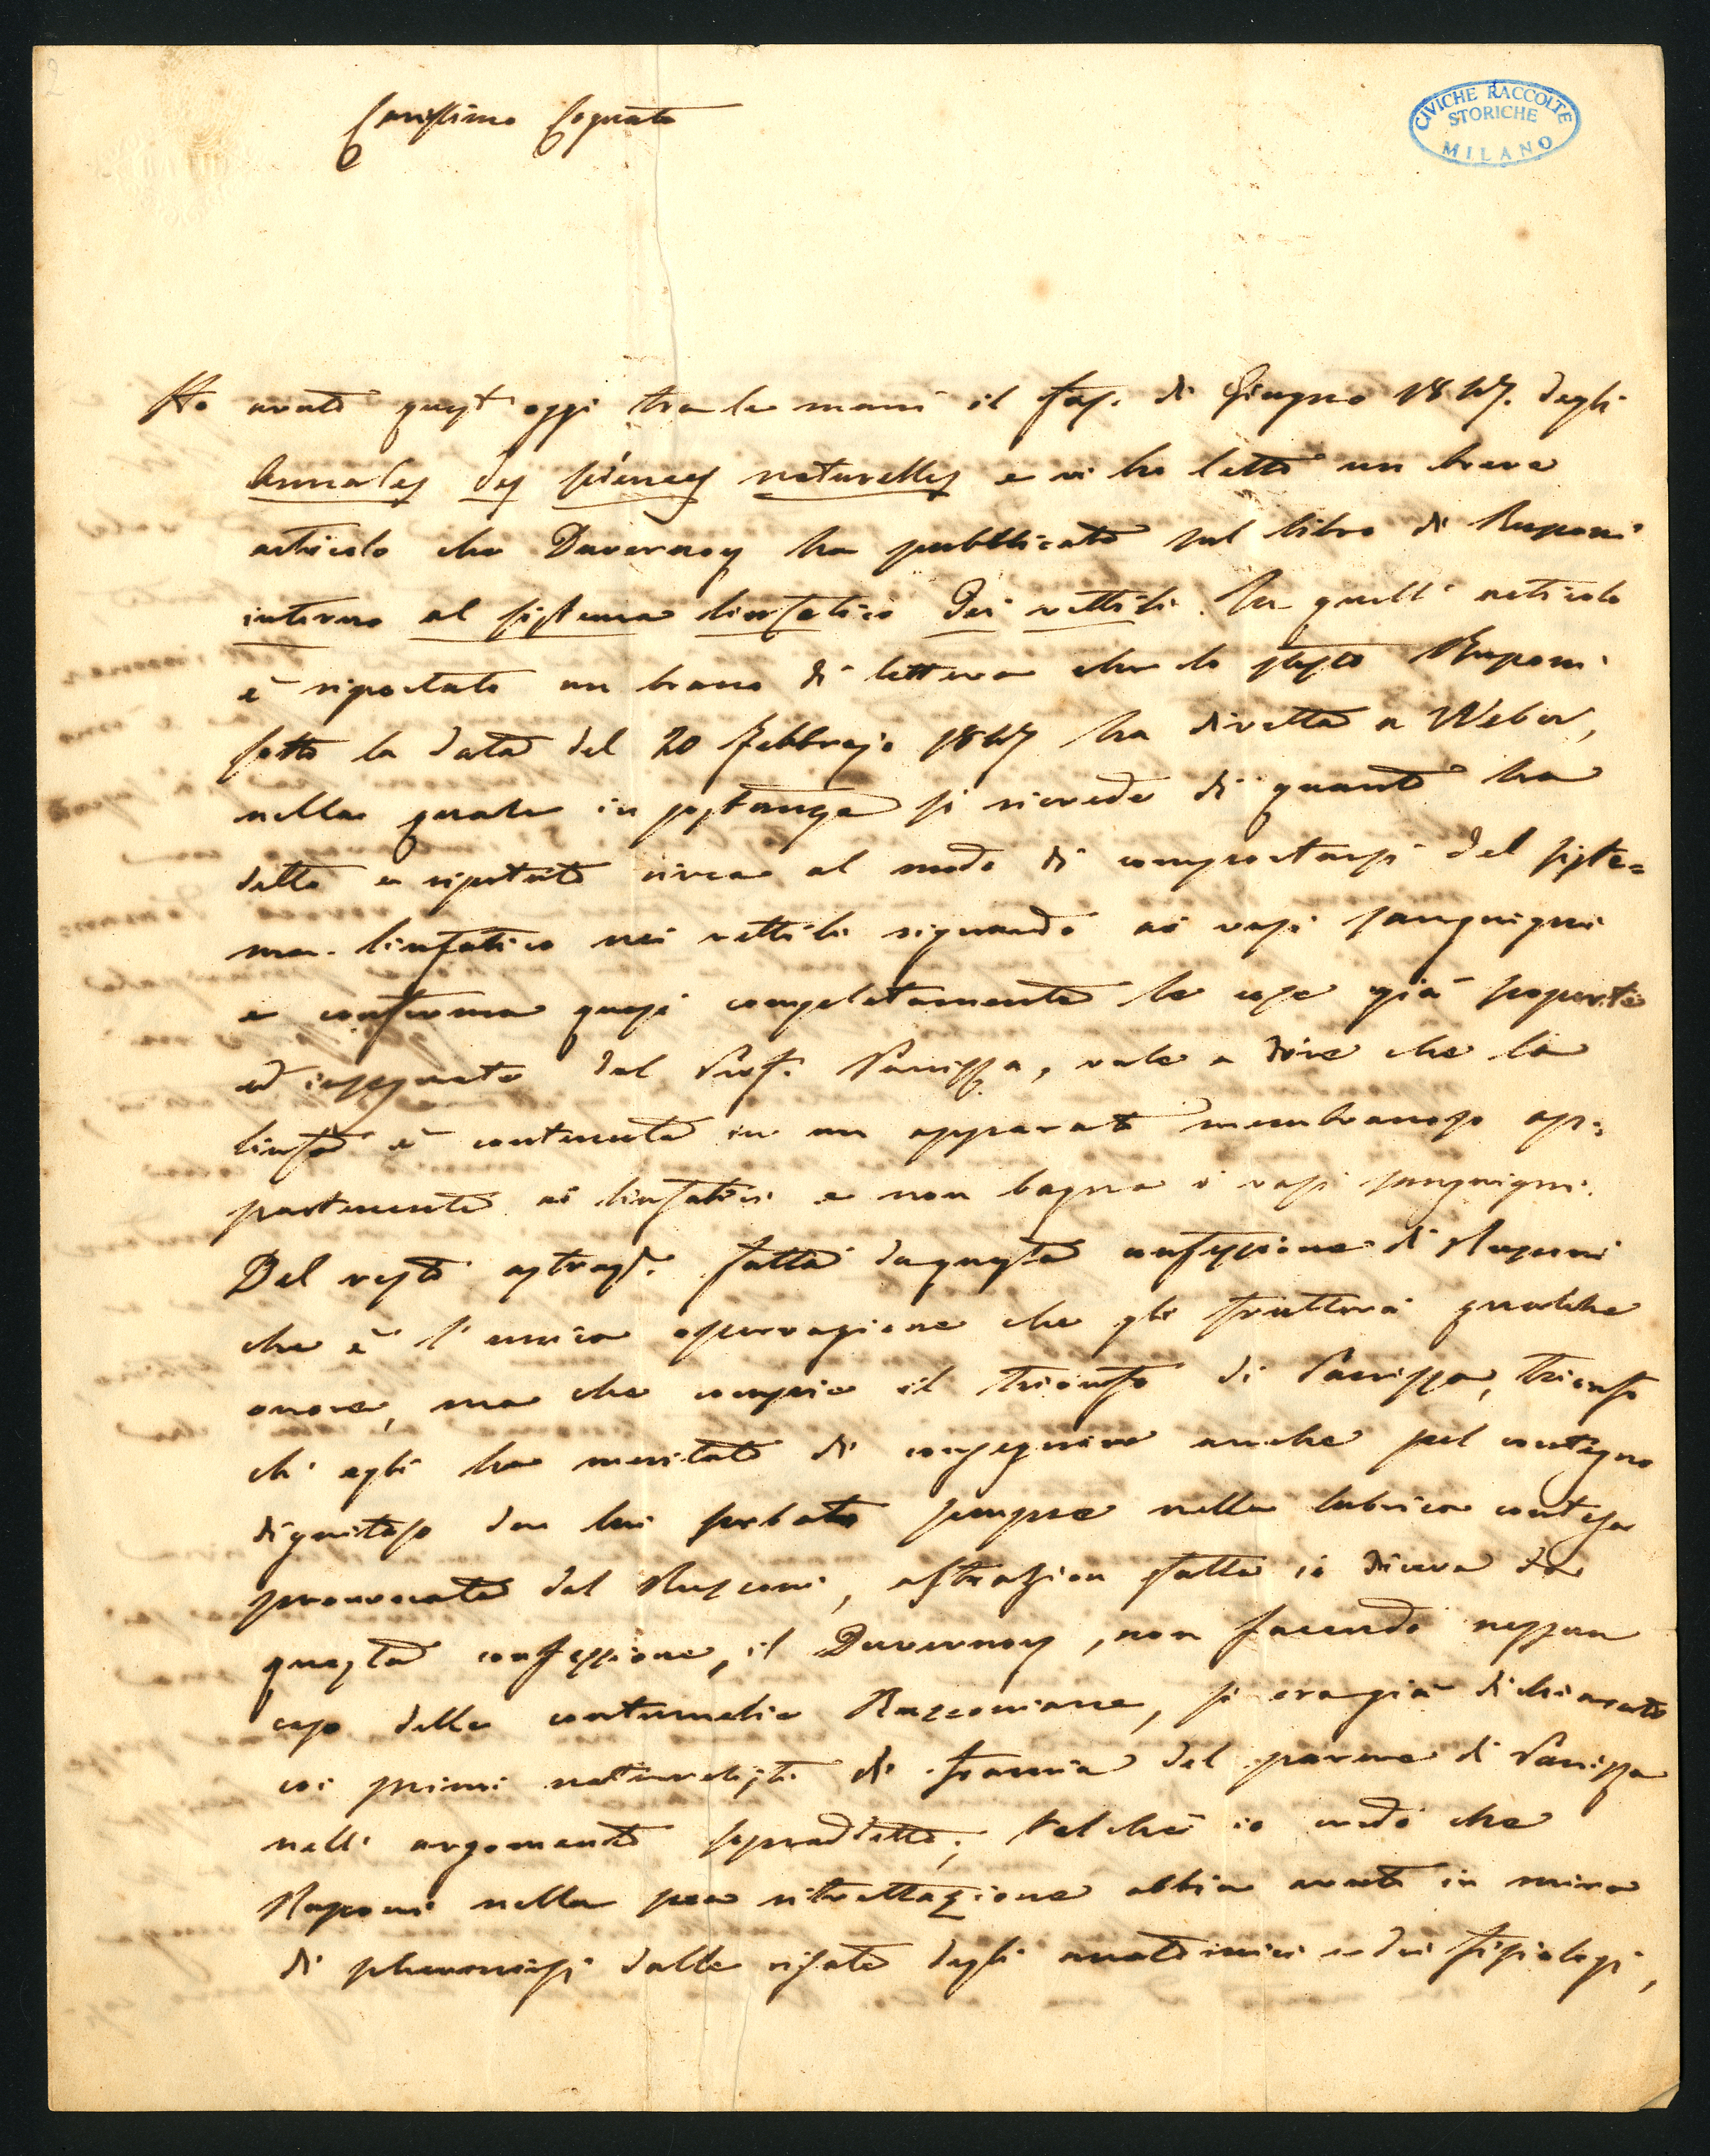 2
Carissimo Cognato
CIVICHE RACCOLTE
STORICHE
MILANO
Ho avuto quest'oggi tra le mani il fas. di Giugno 1847. degli
Annales des sciences naturelles e vi ho letto un breve
articolo che Duvernoy ha pubblicato sul libro di Rusconi
intorno al sistema linfatico dei rettili. In quell'articolo
è riportato un brano di lettera che lo stesso Rusconi
sotto la data del 20 Febbrajo 1847 ha diretta a Weber,
nella quale in sostanza si ricrede di quanto ha
detto e ripetuto circa al modo di comportarsi del siste=
ma linfatico nei rettili riguardo ai vasi sanguigni
e conferma quasi completamente le cose già scoperte
ed insegnate dal Prof. Panizza, vale a dire che la
linfa è contenuta in un apparato membranoso ap=
partenente ai linfatici e non bagna i vasi sanguigni.
Del resto astraz. fatta da questa confessione di Rusconi
che è l'unica osservazione che gli frutterà qualche
onore, ma che compie il trionfo di Panizza, trionfo
ch'egli ha meritato di conseguire anche pel contegno
dignitoso da lui serbato sempre nella lubrica contesa
provocata dal Rusconi, astrazion fatta io diceva da
questa confessione, il Duvernoy, non facendo nessun
caso delle contumelie Rusconiane, si era già dichiarato
coi primi naturalisti di Francia del parere di Panizza
nell'argomento sopradetto; talchè io credo che
Rusconi nella sua ritrattazione abbia avuto in mira
di schermirsi dalle risate degli anatomici e dei fisiologi,